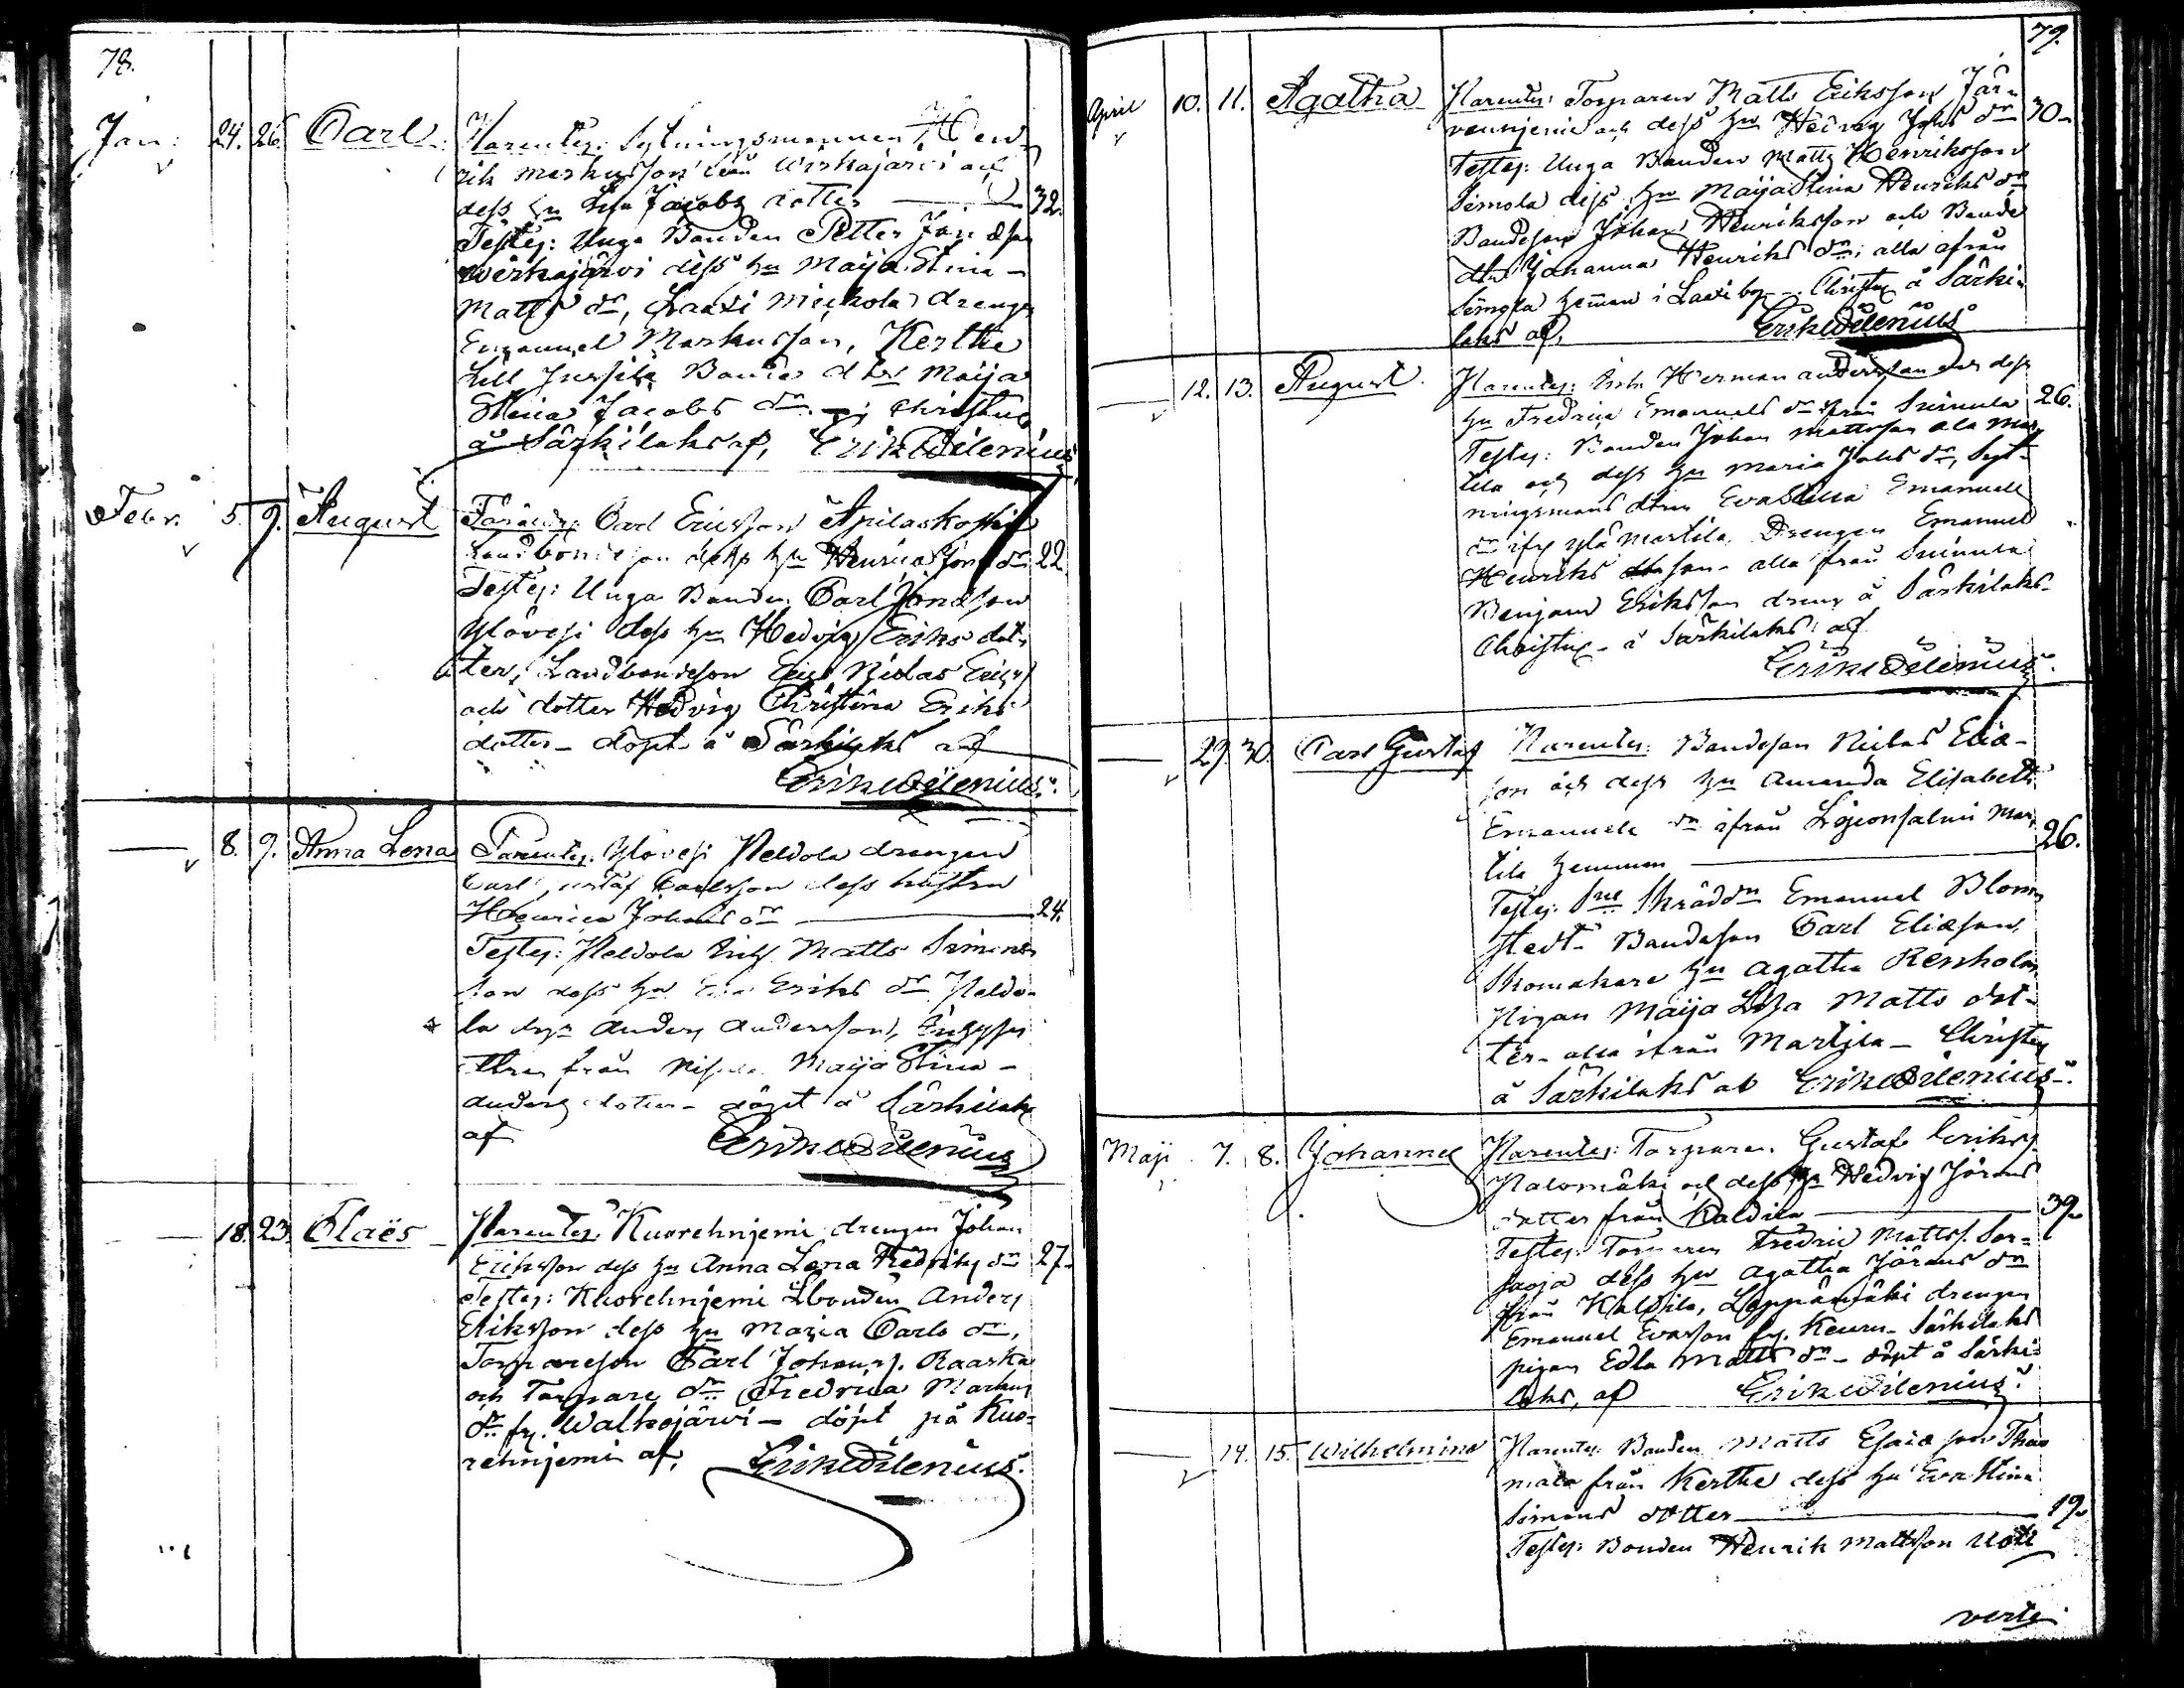 78.
Jan: 24. 26. Carl. Parentes: Sytningsmannen Hen-
rik Markusson från Wirkajärvi och
dess hu Jacobs dotter 32.
Testes: Unga Bonden Petter Jonæson
Wirkajärvi dess hu Maija Stina
Matts dr, Laxi Mickola drengen
Emanuel Markusson, Kerttu
Lill Jussila Bonde dtr Maija
Stina Jacobs dr. Christnes
å Särkilaks af, Erik Wilenius
Febr. 5. 9. August Parentes: Carl Ericsson Apilaskoski
Landbondeson dess hu Henrica Jonæ dr 22
Testes: Unga Bonden Carl Jonæson
Ylövesi dess hu Hedvig Eriks dot-
ter, Landbondeson Niclas
och dotter Hedvig Christina Eriks
dotter - döpt å Särkilaks af
Erik Wilenius.
8. 9. Anna Lena Parentes: Ylövesi Peldola drengen
Carl Gustaf Carlsson dess hustru
Henrica Johans dr 24.
Testes: Peldola Matts Simons
son dess hu Eva Eriks dr Peldo-
la Anders Andersson,
från Maija Stina
Anders dotter - döpt å Särkilaks
af Erik Wilenius
18. 23. Claës Parentes: Kuorehnjemi drengen Johan
Eriksson dess hu Anna Lena Fredriks dr 27.
Testes: Kuorehnjemi Lbonden Anders
Eriksson dess hu Maria Carls dr,
Torpareson Carl Johans. Raaska
och Torpare dr Fredrica Markus
dr fr. Walkojärvi - döpt på Kuo-
rehnjemi af, Erik Wilenius.
79.
April 10. 11. Agatha Parentes: Torparen Matts Eriksson Jär-
vennjemi och dess hu Hedvig Johs dr 30.
Testes: Unga Bonden Matts Henriksson
Simola dess hu Maija Stina Henriks dr
Bondeson Johan Henriksson och Bonde
dtr Johanna Henriks dr, alla ifrån
Simola heman i Laxi by - Christnes å Särki-
laks af, Erik Wilenius
12. 13. August. Parentes: Herman Andersson och dess
hu Fredrica Emanuels dr ifrån Suinula 26.
Testes: Bonden Johan Mattsson Ala Mar-
tila och dess hu Maria Johs dr, Syt-
ningsmans dtren Eva Stina Emanuels
dr ifr. Ylä Martila, Drengen Emanuel
Henriks son - alla från Suinula
Benjam Eriksson dreng å Särkilaks -
Christnes - å Särkilaks af
Erik Wilenius.
29. 30. Carl Gustaf Parentes: Bondeson Niclas Eliæ-
son och dess hu Amanda Elisabeth
Emanuels dr ifrån Lijeonsalmi Mar-
tila hemman 26.
Testes: Skrädd Emanuel Blom-
stedt Bondeson Carl Eliæson,
Skomakare hu Agatha Renholm
Pigan Maija Lisa Matts dot-
ter - alla ifrån Martila - Christnes
å Särkilaks af Erik Wilenius.
Maji 7. 8. Johannes Parentes: Torparen Gustaf Eriks.
Palomäki och dess hu Hedvig Jörans
dotter från Kaldila 39.
Testes: Torparen Fredric Matts. Sor-
saoja dess hu Agatha Jörans dr
från Kaldila, Leppämäki drengen
Emanuel Evasson fr. Keuru - Särkilaks
pigan Edla Matts dr - döpt å Särki-
laks, af Erik Wilenius.
14. 15. Wilhelmina Parentes: Bonden Matts Esaiæson Tho-
mala från Kerttu dess hu Eva Stina
Simons dotter 19.
Testes: Bonden Henrik Mattsson Uoti
verte